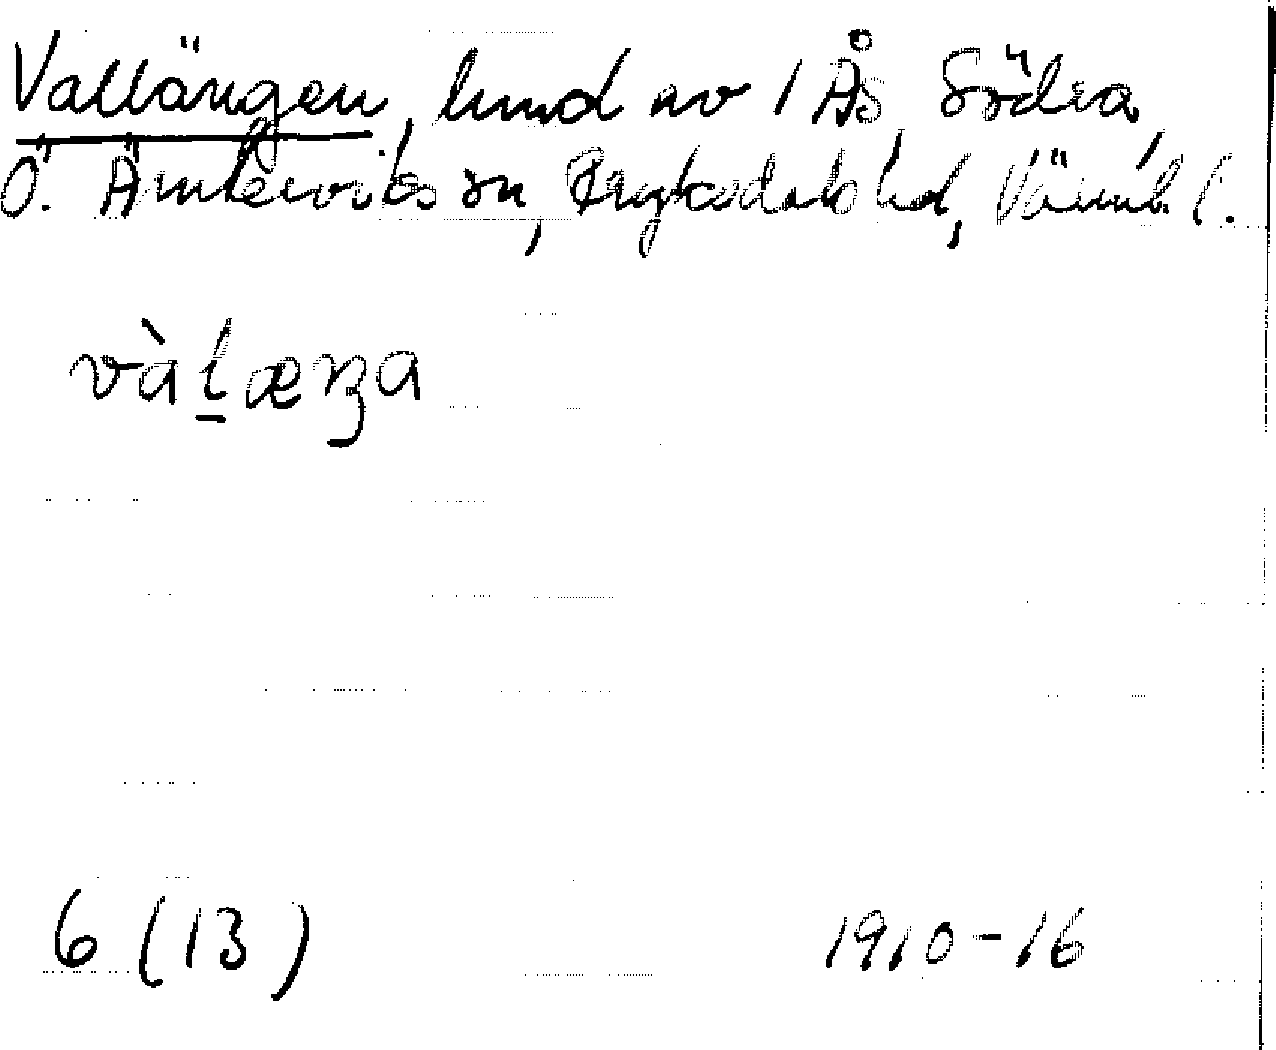 Vallängen, lund av 1 Ås Södra,
Ö. Ämterviks sn, Fryksdals hd, Värml l.
vàḻæŋa
6 (13) 1910-16